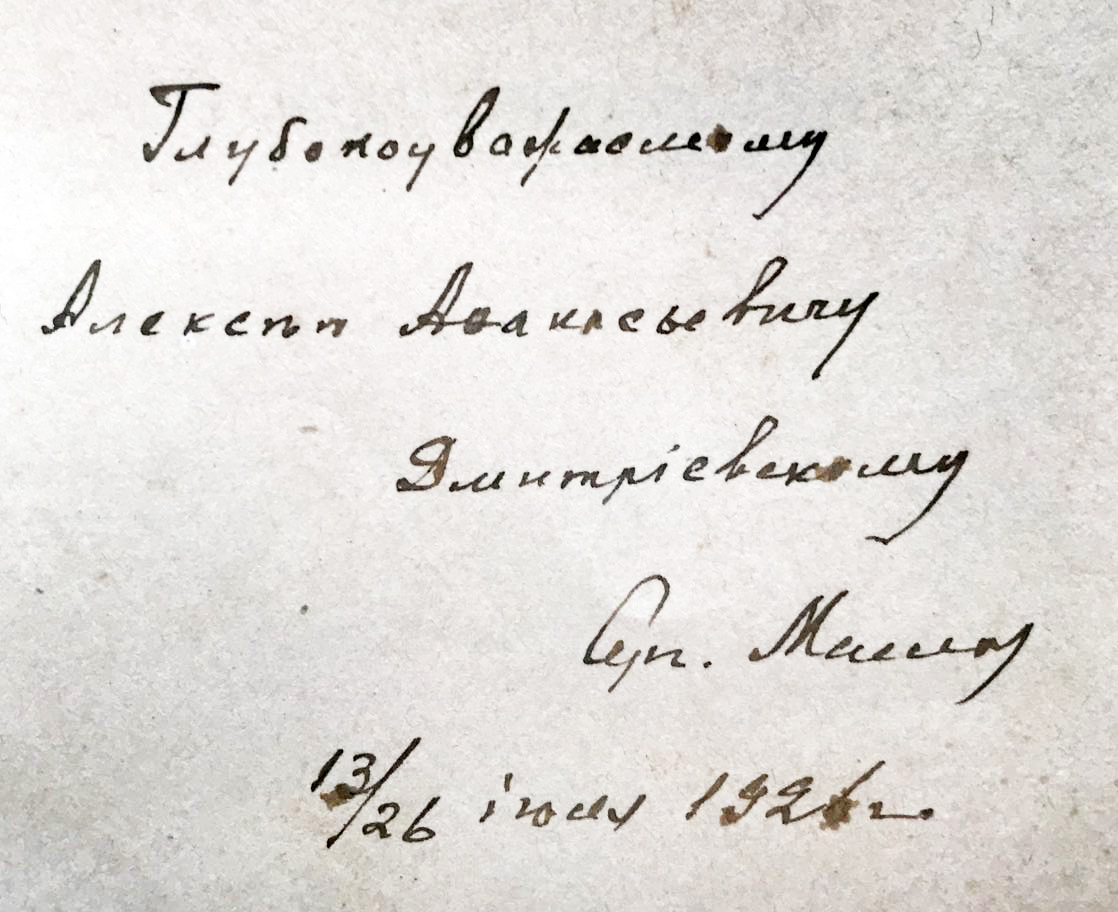 Глубокоуважаемому
Алексѣю Аѳанасьевичу
Дмитріевскому
Серг. Маслов
13/26 іюля 1921 г.